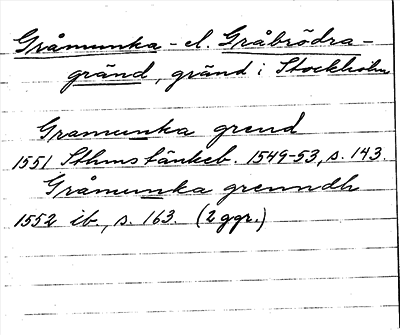 Gråmunka- el. Gråbrödra-
gränd, gränd i Stockholm
Gramunka grend
1551 Sthms tänkeb. 1549-53, s. 143.
Gråmunka grenndh
1552 ib., s. 163. (2 ggr.)